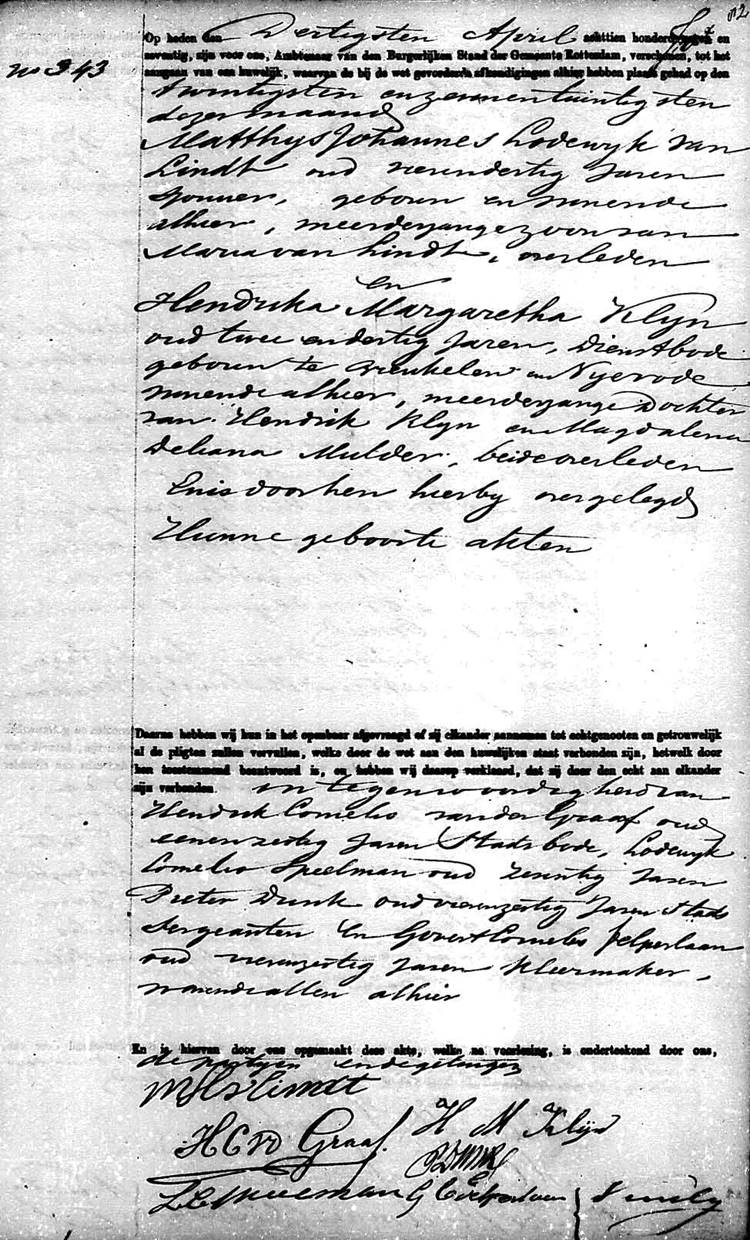 112
no 343
Op heden den Dertigsten April achttien honderd en
seventig, zijn voor ons, Ambtenaar van den Burgerlijken Stand der Gemeente Rotterdam, verschenen, tot het
aangaan van een huwelijk, waarvan de bij de wet gevorderde afkondigingen alhier hebben plaats gehad op den
twintigsten en zevenentwintigsten
dezer maand
Matthys Johannes Lodewyk van
Lindt oud vierendertig Jaren
geboren en wonende
alhier, meerderjarige zoon van
Maria van Lindt, overleden
en
Hendrika Margaretha Klyn
oud twee en dertig Jaren, Dienstbode
geboren te Breukelen Nyerode
wonende alhier, meerderjarige Dochter
van Hendrik Klyn en Magdalena
Deliana Mulder, beide overleden
En is door hen hierby overgelegd
Hunne geboorte akten
Daarna hebben wij hun in het openbaar afgevraagd of zij elkander aannemen tot echtgenooten en getrouwelijk
al de pligten zullen vervullen, welke door de wet aan den huwelijken staat verbonden zijn, hetwelk door
hen toestemmend beantwoord is, en hebben wij daarop verklaard, dat zij door den echt aan elkander
zijn verbonden in tegenwoordigheid van
Hendrik Cornelis van der Graaf oud
eenenzestig Jaren Stadsbode, Lodewyk
Cornelis Speelman oud zeventig Jaren
Pieter Dunk oud vierenzestig Jaren Stads
Sergeanten En Govert Cornelis Pelperlaan
oud vierenzestig Jaren Kleermaker,
wonende allen alhier
En is hiervan door ons opgemaakt deze akte, welke na voorlezing, is onderteekend door ons,
de partyen en de getuigen
v Lindt
H C vd Graaf H M Klijn
L C Speelman G C